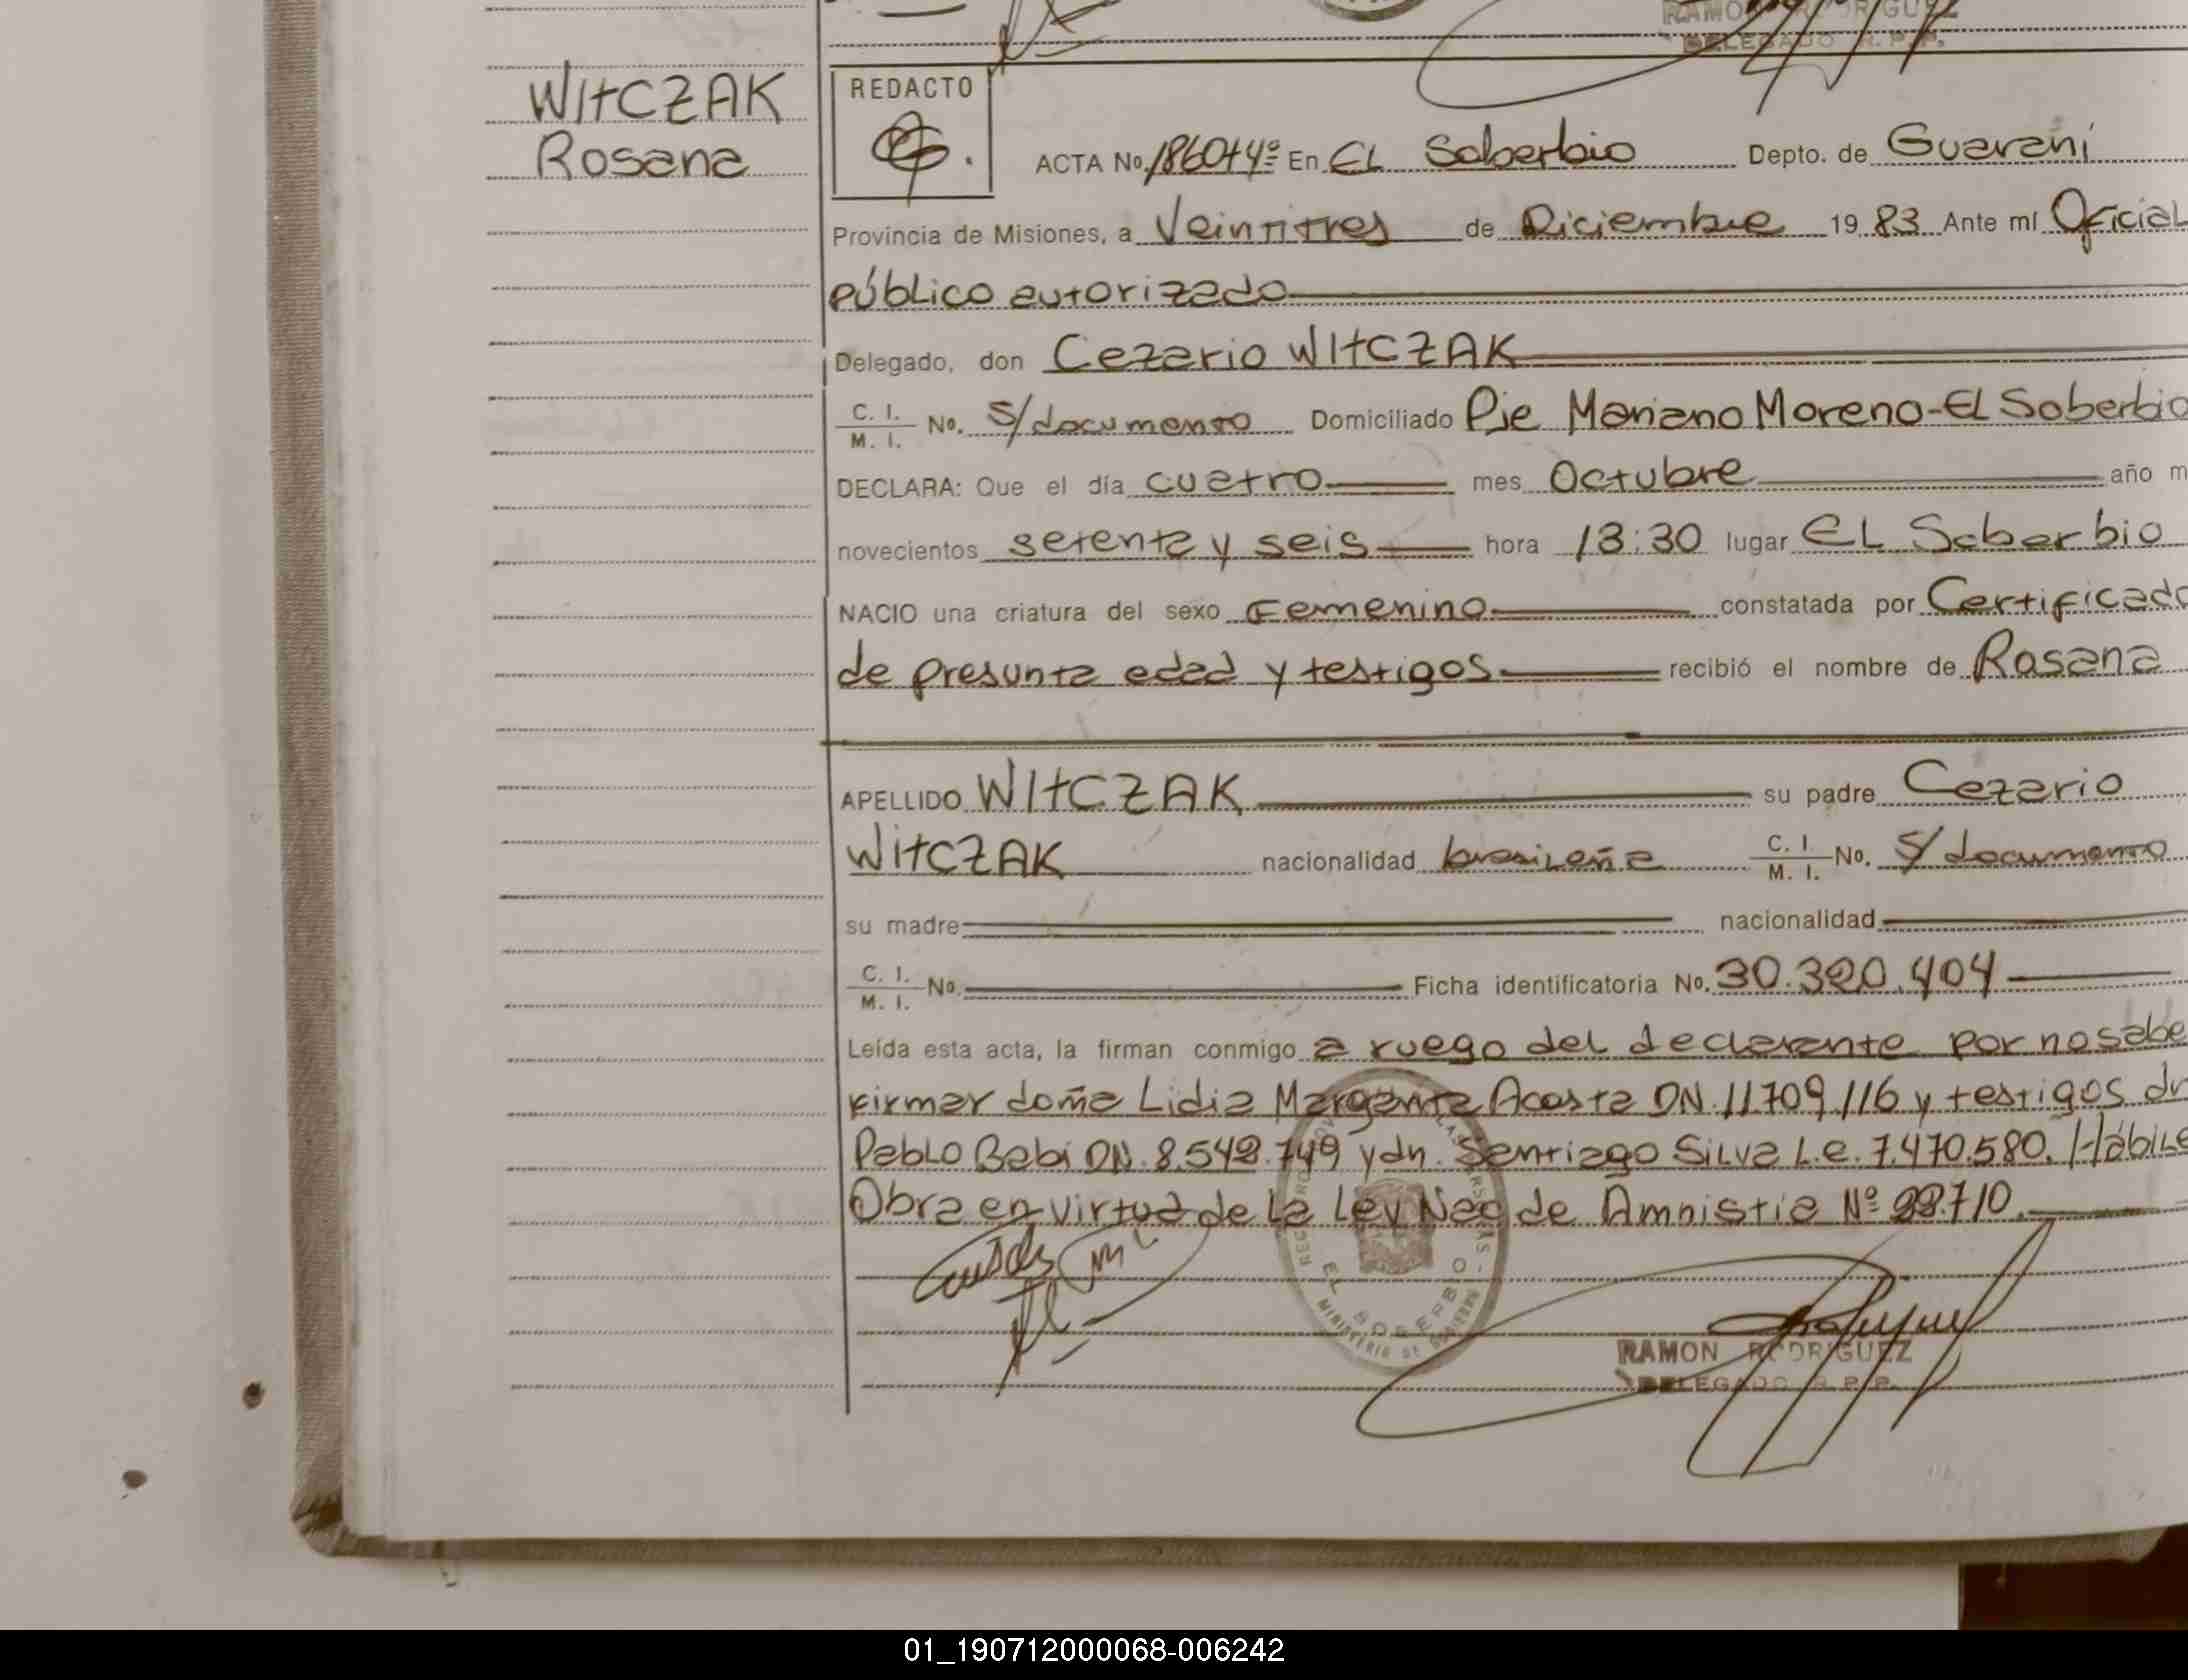 RAMON RODRIGUEZ
DELEGADO R. P. P.
WITCZAK
Rosana
REDACTO
ACTA No. 1860T4º En EL Soberbio Depto. de Guaraní
Provincia de Misiones, a Veintitres de Diciembre 19 83 Ante mí Oficial
público autorizado
Delegado, don Cezario WITCZAK
C. I. / M. I. No. S/documento Domiciliado Pje Mariano Moreno-EL Soberbio
DECLARA: Que el día cuatro mes Octubre año m
novecientos setenta y seis hora 13:30 lugar EL Soberbio
NACIO una criatura del sexo Femenino constatada por Certificado
de presunta edad y testigos recibió el nombre de Rosana
APELLIDO WITCZAK su padre Cezario
WITCZAK nacionalidad brasileña C. I. / M. I. No. S/documento
su madre nacionalidad
C. I. / M. I. No. Ficha identificatoria No. 30.320.404
Leída esta acta, la firman conmigo a ruego del declarante por no sabe
firmar doña Lidia Margarita Acosta DN. 11.709.116 y testigos dn
Pablo Babi DN. 8.542.749 y dn. Santiago Silva L.e. 7.470.580. Hábile
Obra en virtud de la Ley Nac de Amnistia Nº 22.710.
EL SOBERBIO
MINISTERIO DE GOBIERNO
RAMON RODRIGUEZ
DELEGADO R. P. P.
01_190712000068-006242